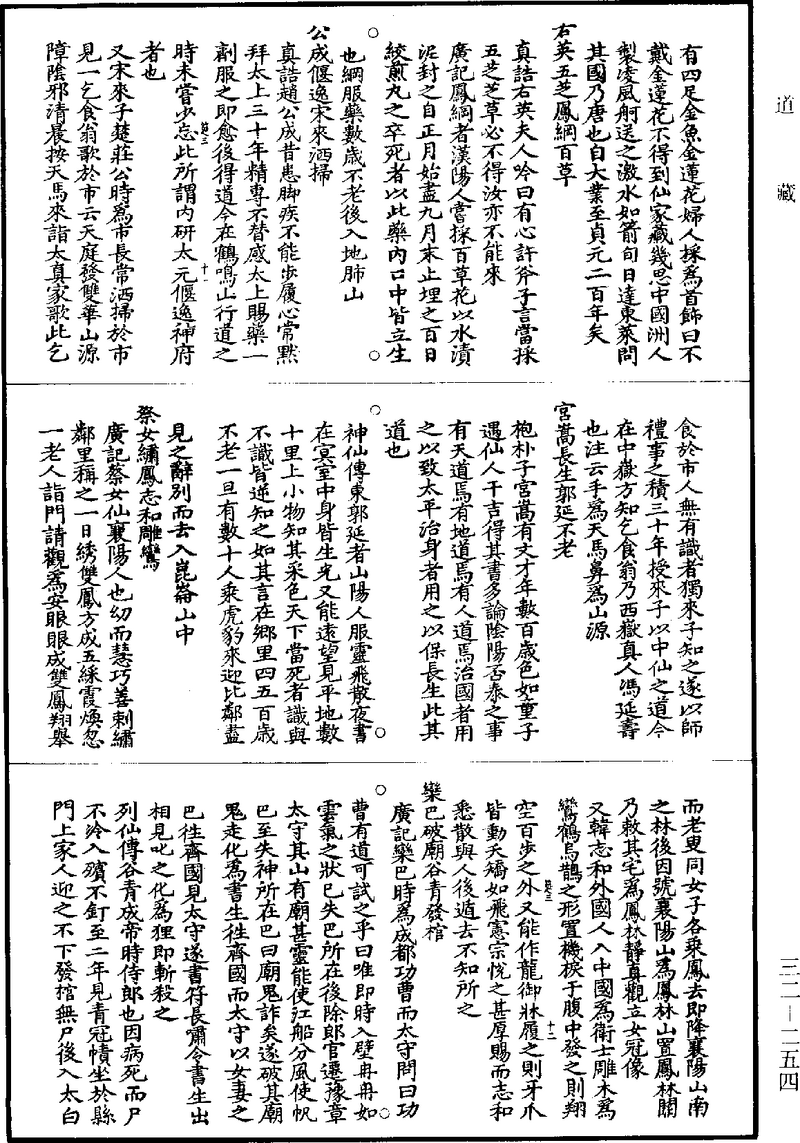 道藏
有四足金魚金蓮花婦人採爲首飾曰不
戴金蓮花不得到仙家藏幾思中國洲人
製凌風舸送之激水如箭旬日達東萊問
其國乃唐也自大業至貞元二百年矣
右英五芝鳳綱百草
真誥右英夫人吟曰有心許斧子言當採
五芝芝草必不得汝亦不能來
廣記鳳綱者漢陽人嘗採百草花以水漬
泥封之自正月始盡九月末止埋之百日
絞煎丸之卒死者以此藥内口中皆立生
也綱服藥數歲不老後入地肺山
公成偃逸宋來洒掃
真誥趙公成昔患脚疾不能步履心常黙
拜太上三十年精專不替感太上賜藥一
劑服之即愈後得道今在鶴鳴山行道之
時未嘗少忘此所謂内研太元偃逸神府
者也
又宋來子楚莊公時爲市長常洒掃於市
見一乞食翁歌於市云天庭發雙華山源
障陰邪清晨按天馬來詣太真家歌此乞
食於市人無有識者獨來子知之遂以師
禮事之積三十年授來子以中仙之道今
在中嶽方知乞食翁乃西嶽真人馮延壽
也注云手爲天馬鼻爲山源
宮嵩長生郭延不老
抱朴子宮嵩有文才年數百歲色如童子
遇仙人干吉得其書多論陰陽否泰之事
有天道焉有地道焉有人道焉治國者用
之以致太平治身者用之以保長生此其
道也
神仙傳東郭延者山陽人服靈飛散夜書
在冥室中身皆生光又能遠望見平地數
十里上小物知其采色天下當死者識與
不識皆逆知之如其言在鄉里四五百歲
不老一旦有數十人乘虎豹來迎比鄰盡
見之辭別而去入崑崙山中
祭女繡鳳志和雕鸞
廣記蔡女仙襄陽人也幼而慧巧善刺繡
鄰里稱之一日綉雙鳳方成五綵霞煥忽
一老人詣門請觀爲安眼眼成雙鳳翔舉
而老叟同女子各乘鳳去即降襄陽山南
之林後因號襄陽山爲鳳林山置鳳林關
乃敕其宅爲鳳林靜真觀立女冠像
又韓志和外國人入中國爲衛士雕木爲
鸞鶴烏鵲之形置機捩于腹中發之則翔
空百步之外又能作龍御牀履之則牙爪
皆動夭矯如飛憲宗悅之甚厚賜而志和
悉散與人後遁去不知所之
欒巴破廟谷青發棺
廣記欒巴時爲成都功曹而太守問曰功
曹有道可試之乎曰唯即時入壁冉冉如
雲氣之狀已失巴所在後除郎官遷豫章
太守其山有廟甚靈能使江船分風使帆
巴至失神所在巴曰廟鬼詐矣遂破其廟
鬼走化爲書生往齊國而太守以女妻之
巴往齊國見太守遂書符長嘯令書生出
相見叱之化爲狸即斬殺之
列仙傳谷青成帝時侍郎也因病死而尸
不冷入殯不釘至二年見青冠幘坐於縣
門上家人迎之不下發棺無尸後入太白
三二—二五四